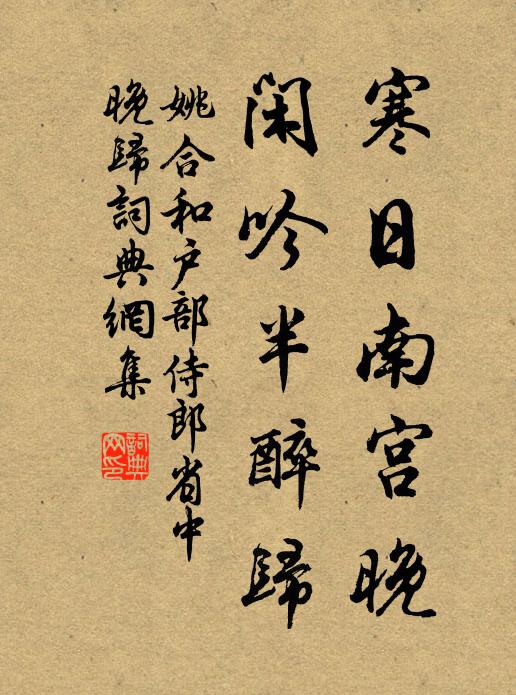 寒日南宫晚
闲吟半醉歸
姚合和户部侍郎省中
晚歸詞典網集
詞典
网印